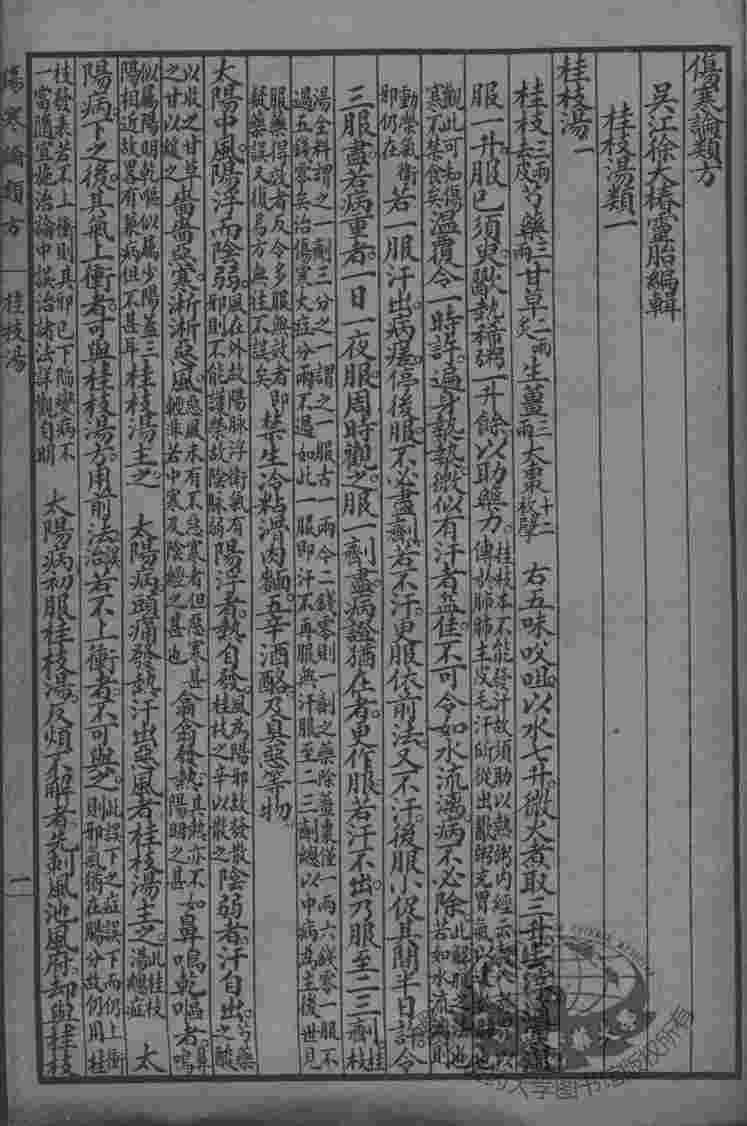 傷寒論類方
吳江徐大椿靈胎編輯
桂枝湯類一
桂枝湯一
桂枝三兩去皮芍藥三兩甘草二兩炙生薑三兩大棗十二枚擘 右五味㕮咀以水七升微火煮取三升去滓適寒溫
服一升服已須臾歠熱稀粥一升餘以助藥力桂枝本不能發汗故須助以熱粥內經云傳於肺肺主皮毛汗所從出歠粥充胃氣以達於肺也
觀此可知傷寒不禁食矣溫覆令一時許遍身漐漐微似有汗者益佳不可令如水流漓病不必除此解肌之法也若如水流漓則
動榮氣衛邪仍在若一服汗出病瘥停後服不必盡劑若不汗更服依前法又不汗後服小促其間半日許令
三服盡若病重者一日一夜服周時觀之服一劑盡病證猶在者更作服若汗不出乃服至二三劑桂枝
湯全料謂之一劑三分之一謂之一服古一兩今二錢零則一劑之藥除薑棗僅一兩六錢零一服不過五錢零矣治傷寒大症分兩不過如此一服即汗不再服無汗服至二三劑總以中病為主後世見
服藥得效者反令多服無效者即疑藥誤又復易方無往不誤矣禁生冷粘滑肉麵五辛酒酪及臭惡等物
太陽中風陽浮而陰弱風在外故陽脉浮衛氣有邪則不能護榮故陰脉弱陽浮者熱自發風為陽邪故發散桂枝之辛以散之陰弱者汗自出芍藥之酸
以收之甘草之甘以緩之嗇嗇惡寒淅淅惡風惡風未有不惡寒者但惡寒甚輕非若中寒及陰經之甚也翕翕發熱其熱亦不如陽明之甚鼻鳴乾嘔者鼻鳴
似屬陽明乾嘔似屬少陽蓋三陽相近故略有兼病但不甚耳桂枝湯主之 太陽病頭痛發熱汗出惡風者桂枝湯主之此桂枝湯總症 太
陽病下之後其氣上衝者可與桂枝湯方用前法誤治若不上衝者不可與之此誤下之症誤下而仍上衝則邪氣猶在陽分故仍用桂
枝發表若不上衝則其邪已下陷變病不一當隨宜施治論中誤治諸法詳觀自明 太陽病初服桂枝湯反煩不解者先刺風池風府却與桂枝
傷寒論類方 桂枝湯 一